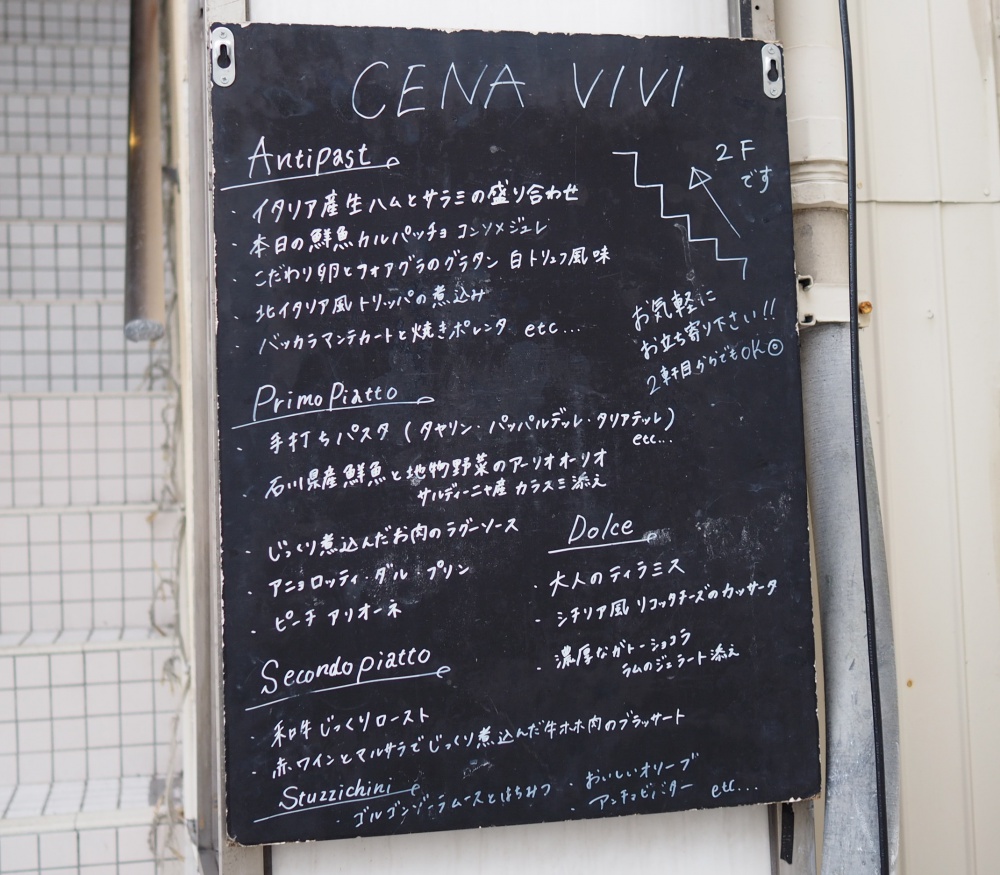 CENA VIVI
Antipast
・イタリア産生ハムとサラミの盛り合わせ
・本日の鮮魚カルパッチョ コンソメジュレ
・こだわり卵とフォアグラのグラタン 白トリュフ風味
・北イタリア風トリッパの煮込み
・バッカラマンテカートと焼きポレンタ etc...
2F
です
お気軽に
お立ち寄り下さい!!
2軒目からでもOK◎
Primo Piatto
・手打ちパスタ (タヤリン・パッパルデッレ・タリアテッレ)
etc...
・石川県産鮮魚と地物野菜のアーリオオーリオ
サルディーニャ産 カラスミ添え
・じっくり煮込んだお肉のラグーソース
・アニョロッティ・ダル・プリン
・ピーチ アリオーネ
Dolce
・大人のティラミス
・シチリア風 リコッタチーズのカッサータ
・濃厚なガトーショコラ
ラムのジェラート添え
Secondo piatto
・和牛じっくりロースト
・赤ワインとマルサラでじっくり煮込んだ牛ホホ肉のブラッサート
Stuzzichini
・ゴルゴンゾーラムースとはちみつ
・おいしいオリーブ
・アンチョビバター etc...